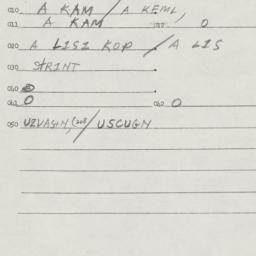 010 A KAM / A KEML,
011 A KAM 0
020 A LISI KOP / A LIS
030 STRINT
040 0
041 0 042 0
050 UZVASIN, (208) / USCUGN